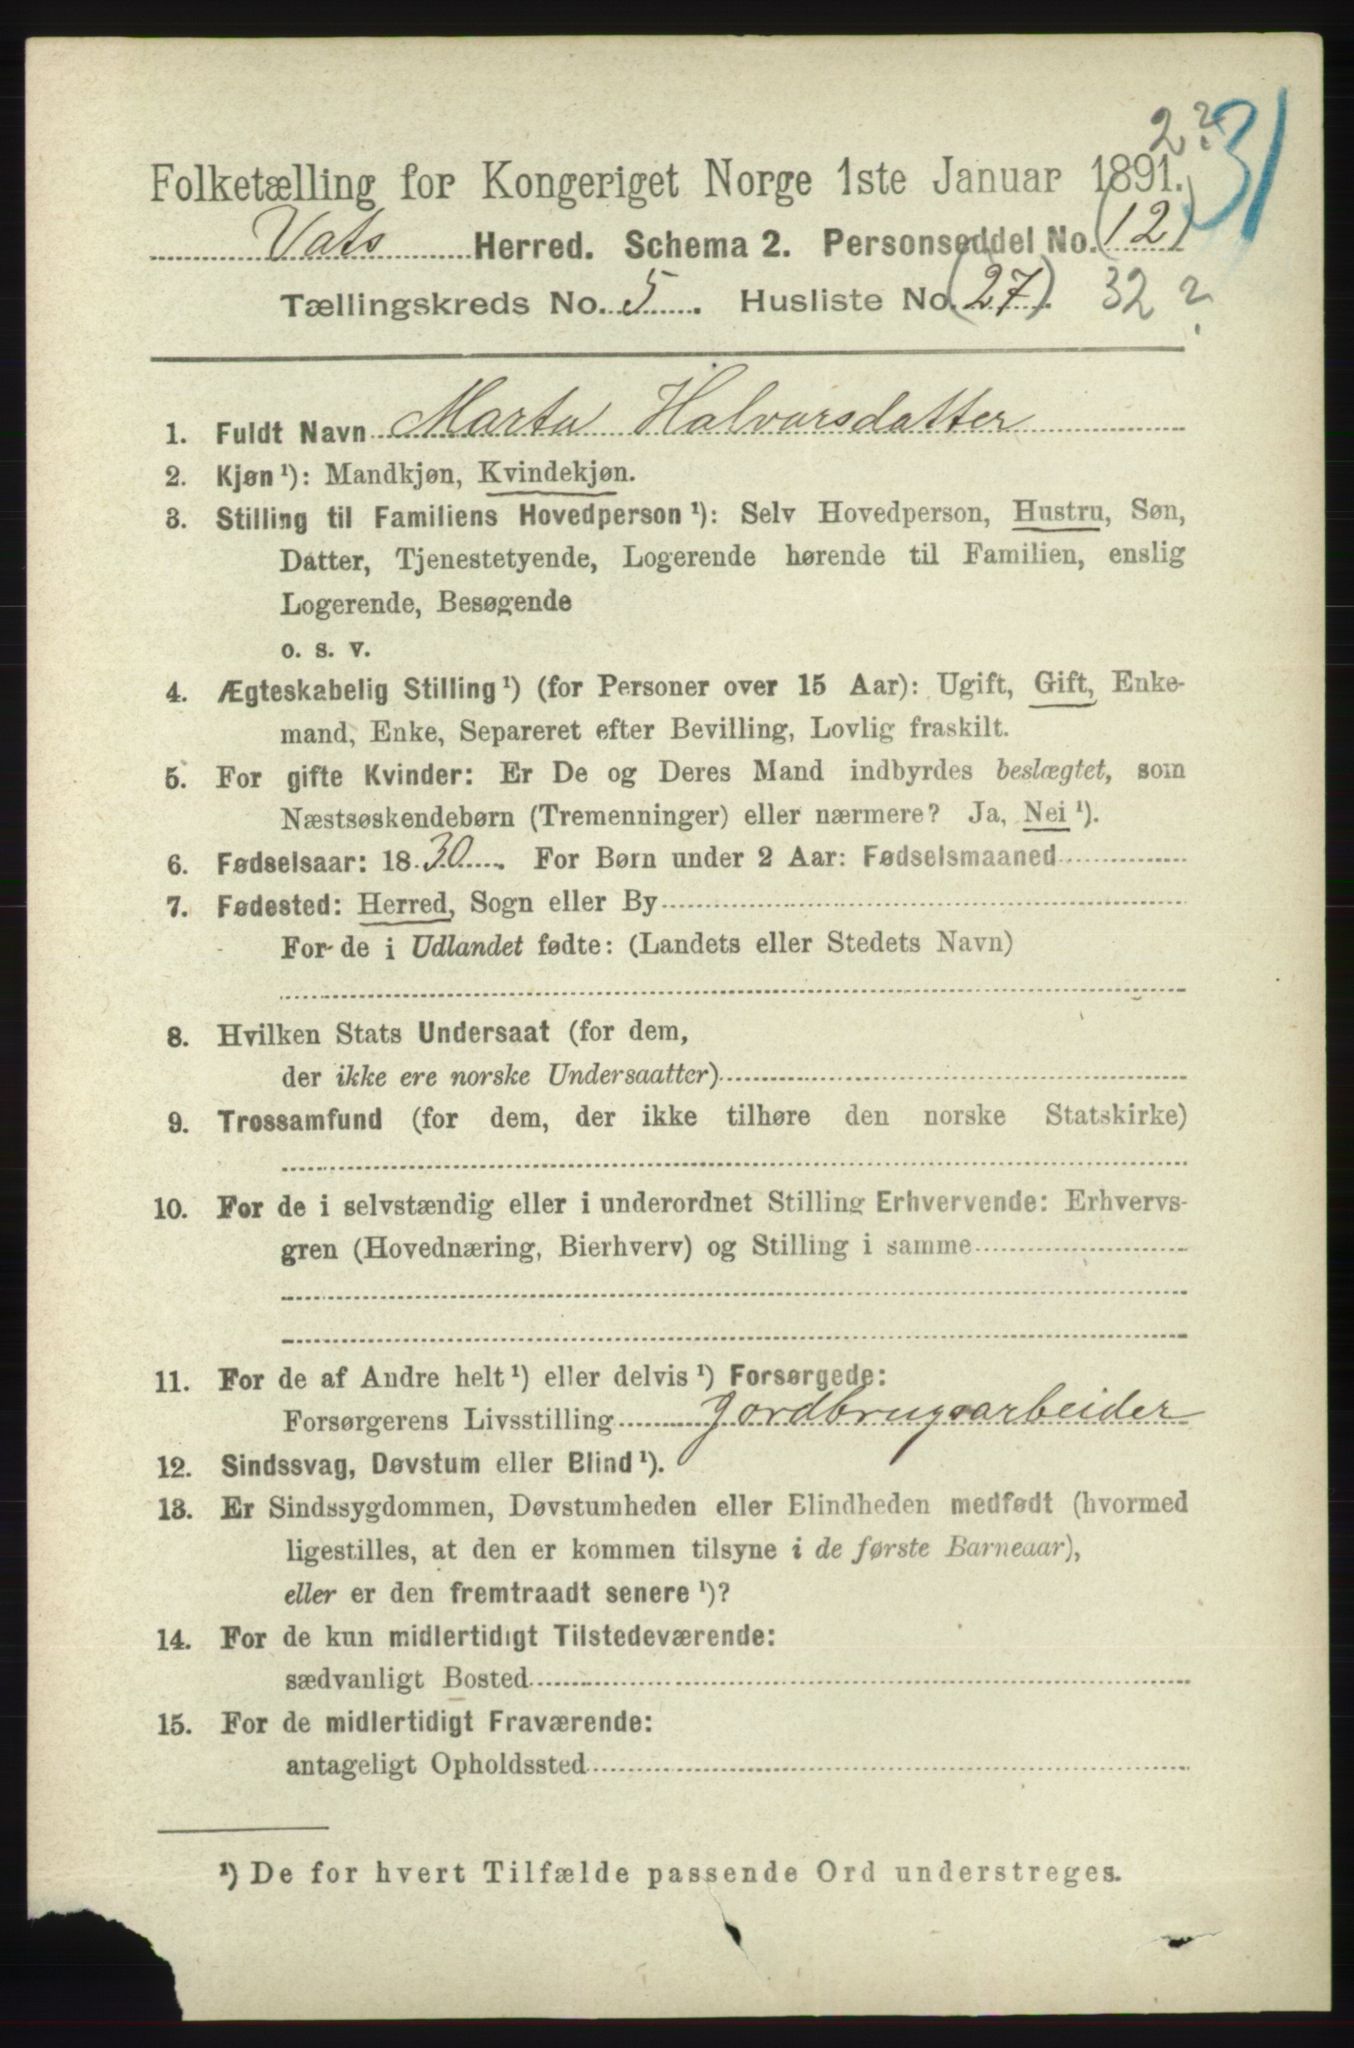 2? 31
Folketælling for Kongeriget Norge 1ste Januar 1891.
Vats Herred. Schema 2. Personseddel No. (12)
Tællingskreds No. 5. Husliste No. (27). 32?
1. Fuldt Navn Marta Halvorsdatter
2. Kjøn¹): Mandkjøn, Kvindekjøn.
3. Stilling til Familiens Hovedperson¹): Selv Hovedperson, Hustru, Søn,
Datter, Tjenestetyende, Logerende hørende til Familien, enslig
Logerende, Besøgende
o. s. v.
4. Ægteskabelig Stilling¹) (for Personer over 15 Aar): Ugift, Gift, Enke-
mand, Enke, Separeret efter Bevilling, Lovlig fraskilt.
5. For gifte Kvinder: Er De og Deres Mand indbyrdes beslægtet, som
Næstsøskendebørn (Tremenninger) eller nærmere? Ja, Nei¹).
6. Fødselsaar: 1830. For Børn under 2 Aar: Fødselsmaaned
7. Fødested: Herred, Sogn eller By
For de i Udlandet fødte: (Landets eller Stedets Navn)
8. Hvilken Stats Undersaat (for dem,
der ikke ere norske Undersaatter)
9. Trossamfund (for dem, der ikke tilhøre den norske Statskirke)
10. For de i selvstændig eller i underordnet Stilling Erhvervende: Erhvervs-
gren (Hovednæring, Bierhverv) og Stilling i samme
11. For de af Andre helt¹) eller delvis¹) Forsørgede:
Forsørgerens Livsstilling Jordbrugsarbeider
12. Sindssvag, Døvstum eller Blind¹).
13. Er Sindssygdommen, Døvstumheden eller Blindheden medfødt (hvormed
ligestilles, at den er kommen tilsyne i de første Barneaar),
eller er den fremtraadt senere¹)?
14. For de kun midlertidigt Tilstedeværende:
sædvanligt Bosted
15. For de midlertidigt Fraværende:
antageligt Opholdssted
¹) De for hvert Tilfælde passende Ord understreges.